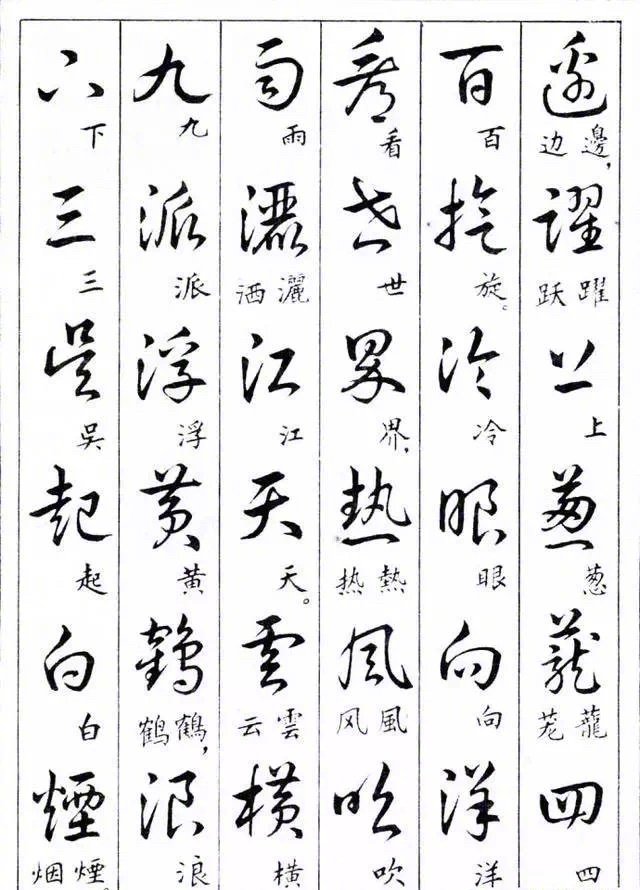 邊躍上葱蘢四
邊,边躍跃上葱蘢茏四
百旋冷眼向洋
百旋。冷眼向洋
看世界熱風吹
看世界,熱热風风吹
雨灑江天雲横
雨灑洒江天。雲云横
九派浮黄鶴浪
九派浮黄鶴,鹤浪
下三吴起白煙
下三吴起白煙。烟